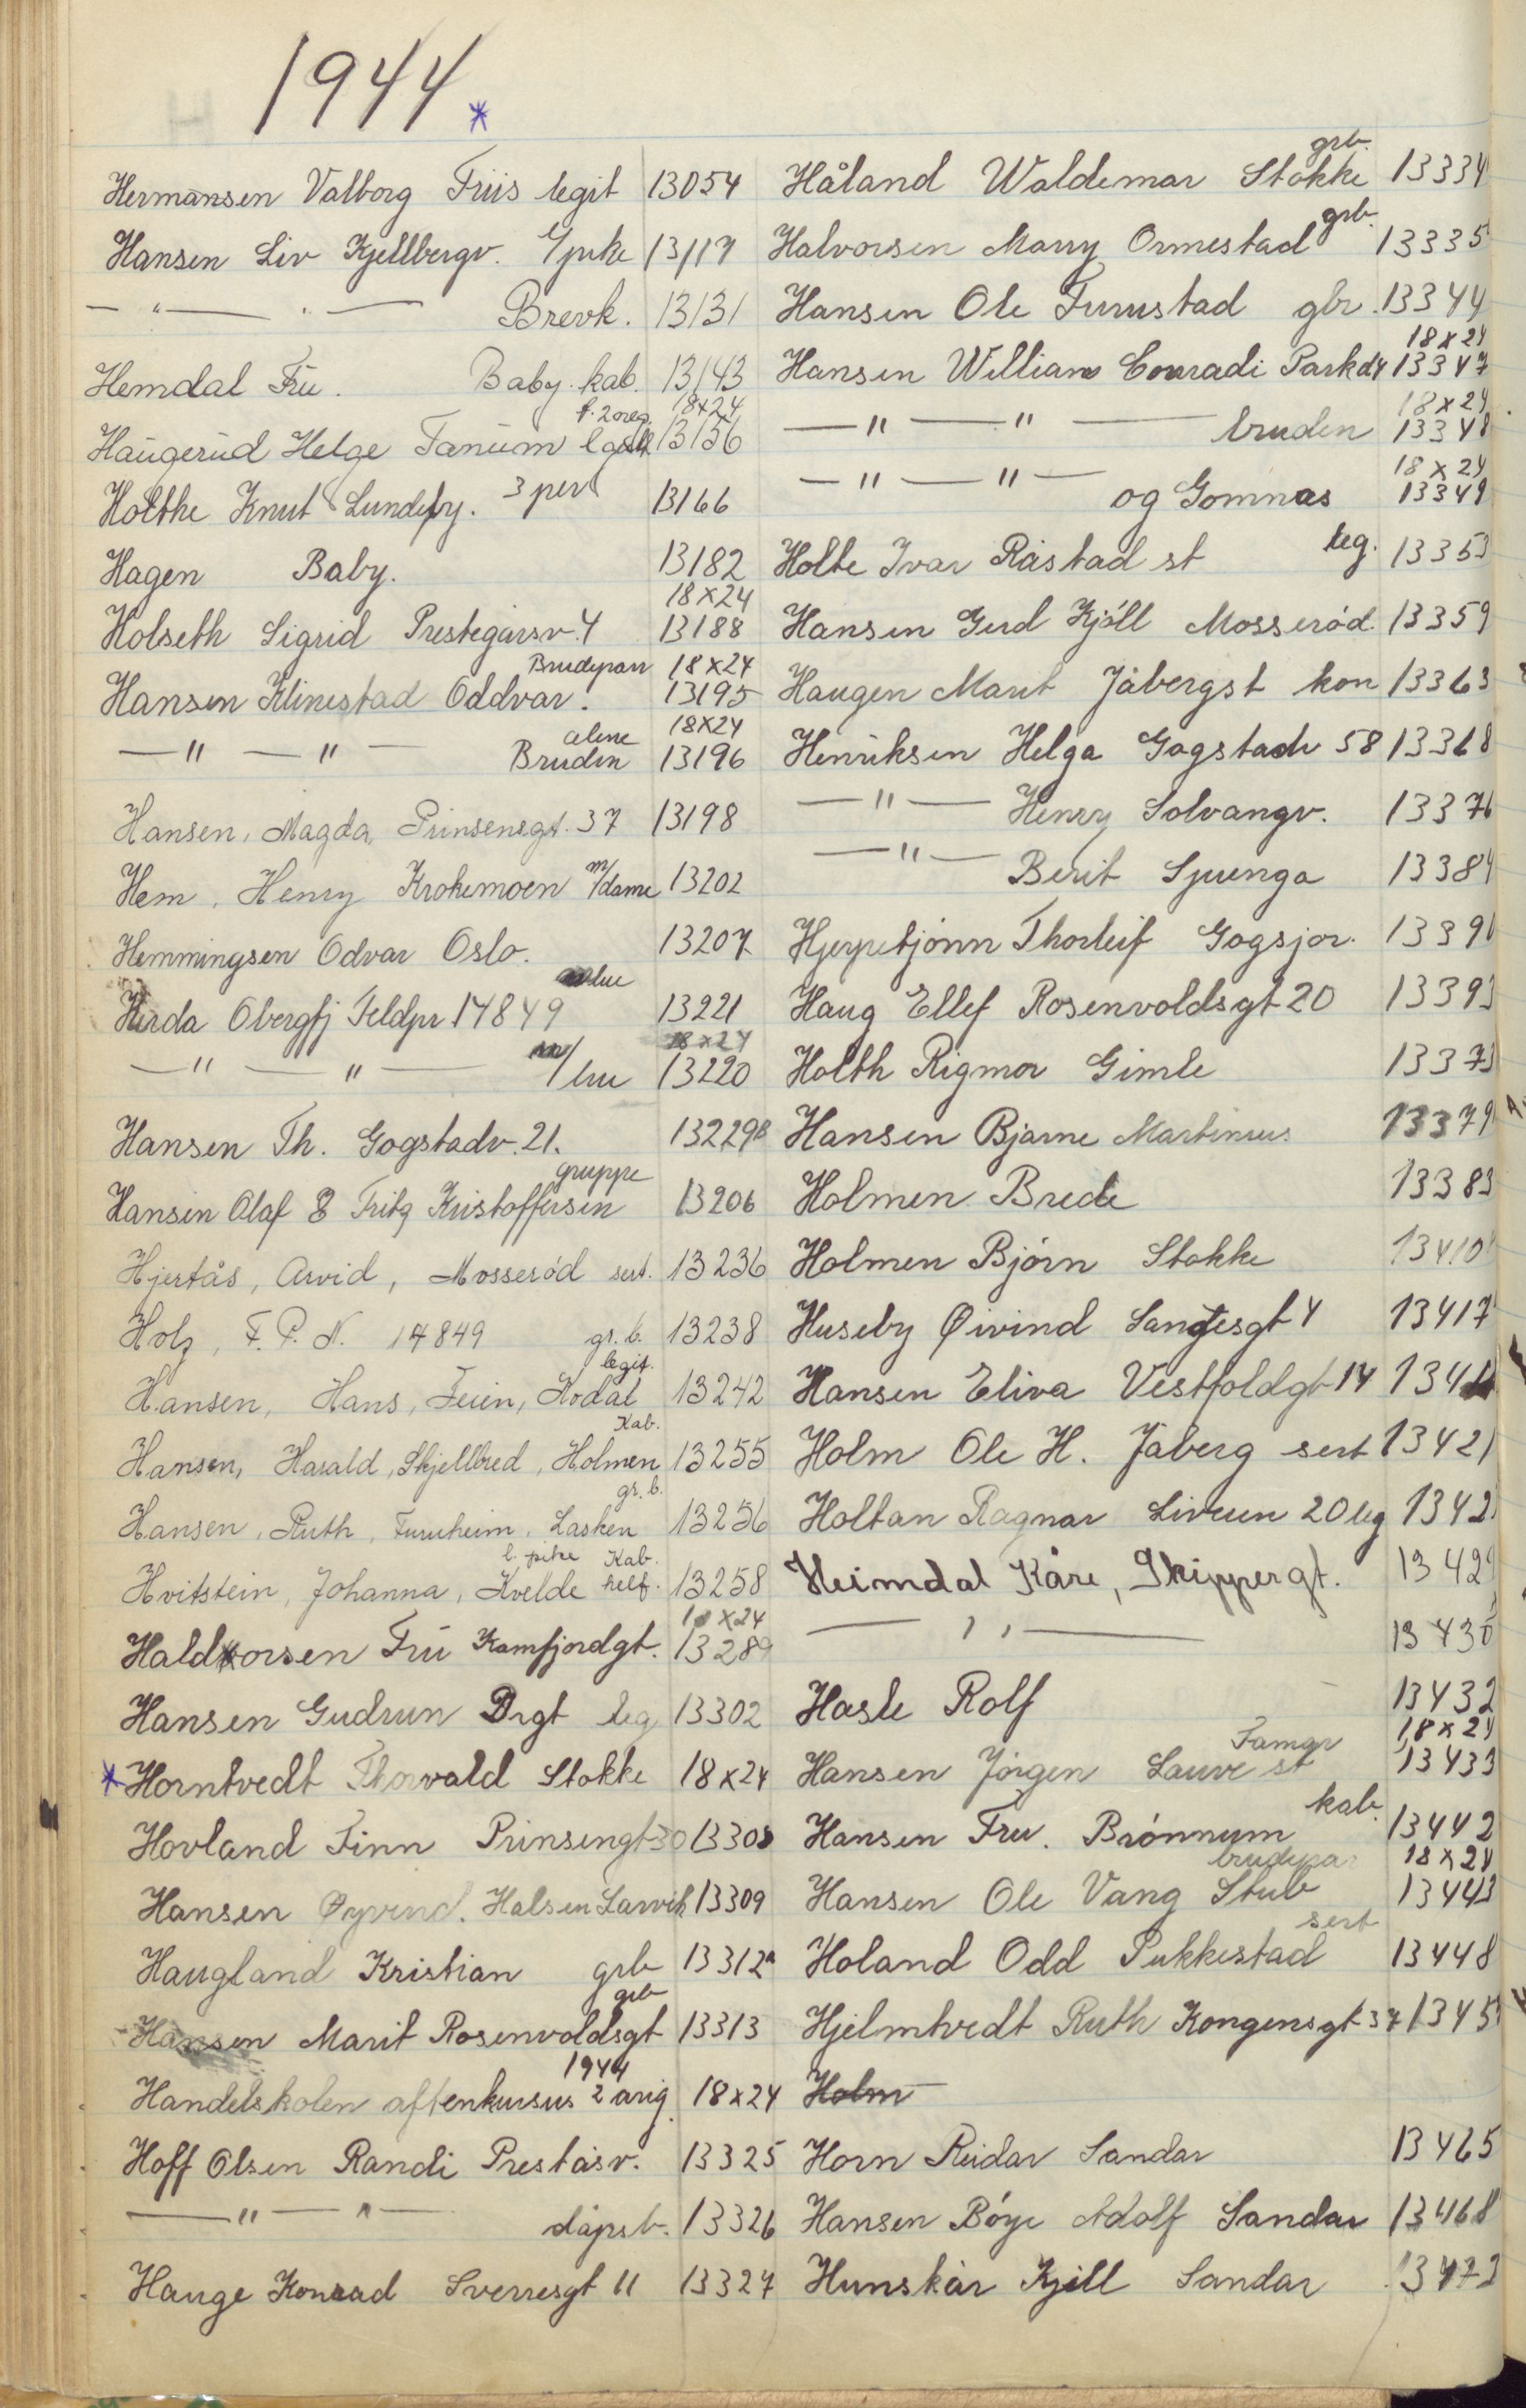 1944 *
Hermansen Valborg Friis legit 13054
Hansen Liv Kjellbergv. Yrke 13117
— " — " — Brevk. 13131
Hemdal Fru. Baby. kab. 13143
18x24
Haugerud Helge Tanum 13156
Holthe Knut Lundeby. 3 pers 13166
Hagen Baby. 13182
18x24
Holseth Sigrid Prestegårsv. 4 13188
Brudepar 18x24
Hansen Klinestad Oddvar. 13195
alene 18x24
— " — " — Bruden 13196
Hansen, Magda, Prinsensgt. 37 13198
Hem, Henry Krokemoen m/dame 13202
Hemmingsen Odvar Oslo. 13207
Obergfj Feldpr 14849 13221
18x24
— " — " — m/ 13220
Hansen Th. Gogstadv. 21. 13229B
gruppe
Hansen Olaf & Fritz Kristoffersen 13206
Hjertås, Arvid, Mosserød sert. 13236
Holz, F. P. N. 14849 gr. b. 13238
legit.
Hansen, Hans, Feien, Kodal 13242
Kab.
Hansen, Harald, Skjellbred, Holmen 13255
gr. b.
Hansen, Ruth, Furuheim, Lasken 13256
l. pike Kab.
Hvitstein, Johanna, Kvelde helf. 13258
18x24
Haldvorsen Fru Kamfjordgt. 13289
Hansen Gudrun Drgt leg 13302
* Horntvedt Thorvald Stokke 18x24
Hovland Finn Prinsengt 30 13308
Hansen Øyvind. Halsen Larvik 13309
Haugland Kristian grb 13312a
grb
Hansen Marit Rosenvoldsgt 13313
1944
Handelskolen aftenkursus 2 årig 18x24
Hoff Olsen Randi Preståsv. 13325
— " — " — dåpsb. 13326
Hauge Konrad Sverresgt 11 13327
grb.
Håland Waldemar Stokke 13334
grb.
Halvorsen Marry Ormestad 13335
Hansen Ole Furustad gbr. 13344
18x24
Hansen William Conradi Parkd4 13347
18x24
— " — " — bruden 13348
18x24
— " — " — og Gomnæs 13349
Holte Ivar Råstad st leg. 13353
Hansen Gerd Kjöll Mosseröd. 13359
Haugen Marit Jåbergst kon 13363
Henriksen Helga Gogstadv 58 13368
— " — Henry Solvangv. 13376
— " — Berit Sjuenga 13384
Hjerpetjönn Thorleif Gogsjor. 13391
Haug Ellef Rosenvoldsgt 20 13393
Holth Rigmor Gimle 13373
Hansen Bjarne Martinius 13379
Holmen Brede 13383
Holmen Björn Stokke 13410
Huseby Øivind Sangesgt 4 13417
Hansen Eliva Vestfoldgt 14
Holm Ole H. Jåberg sert 13421
Holtan Ragnar Liveien 20 leg 1342
Heimdal Kåre, Skippergt. 13429
— " — 13430
Hasle Rolf 13432
Famgr 18x24
Hansen Jörgen Sauve st 13433
kab.
Hansen Fru. Brönnum 13442
brudepar 18x24
Hansen Ole Vang Stub 13443
sert
Holand Odd Pukkestad 13448
Hjelmtvedt Ruth Kongensgt 37 1345
Holm
Horn Reidar Sandar 13465
Hansen Böye Adolf Sandar 13468
Hunskår Kjell Sandar 13473